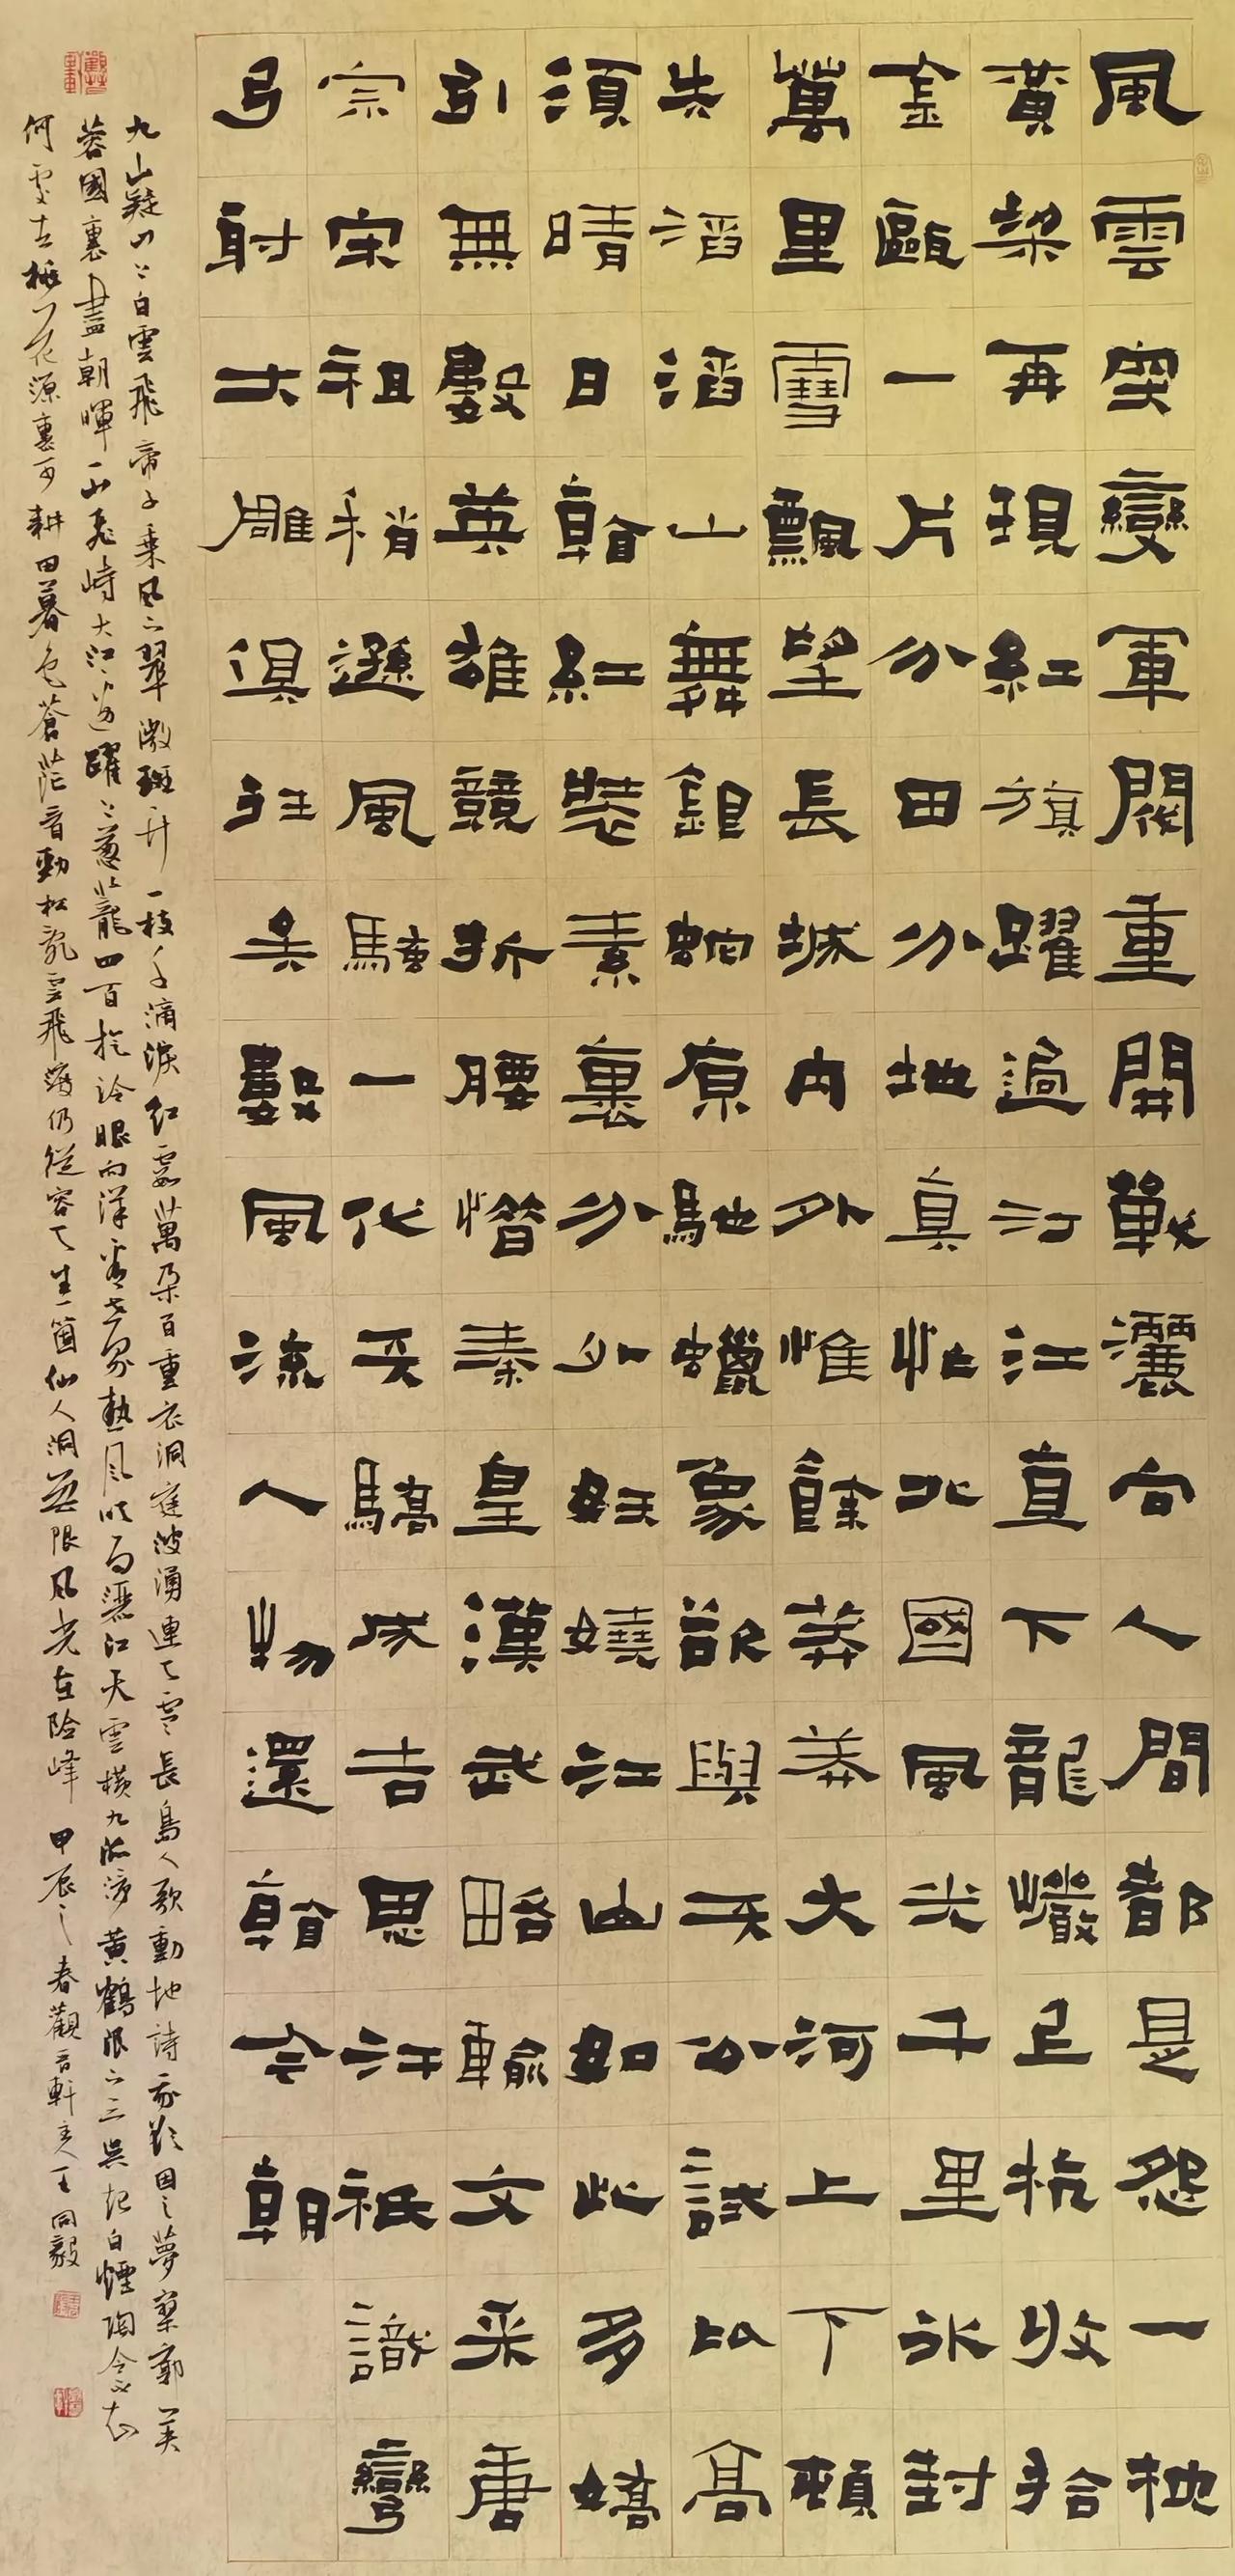 風雲突變軍閥重開戰灑向人間都是怨一枕
黃粱再現紅旗躍過汀江直下龍巖上杭收拾
金甌一片分田分地真忙北國風光千里冰封
萬里雪飄望長城內外惟餘莽莽大河上下頓
失滔滔山舞銀蛇原馳蠟象欲與天公試比高
須晴日看紅裝素裹分外妖嬈江山如此多嬌
引無數英雄競折腰惜秦皇漢武略輸文采唐
宗宋祖稍遜風騷一代天驕成吉思汗祇識彎
弓射大雕俱往矣數風流人物還看今朝
九嶷山上白雲飛帝子乘風下翠微斑竹一枝千滴淚紅霞萬朵百重衣洞庭波湧連天雪長島人歌動地詩我欲因之夢寥廓芙
蓉國裏盡朝暉一山飛峙大江邊躍上蔥蘢四百旋冷眼向洋看世界熱風吹雨灑江天雲橫九派浮黃鶴浪下三吳起白煙陶令不知
何處去桃花源裏可耕田暮色蒼茫看勁松亂雲飛渡仍從容天生一箇仙人洞無限風光在險峰 甲辰之春觀音軒主人王同毅